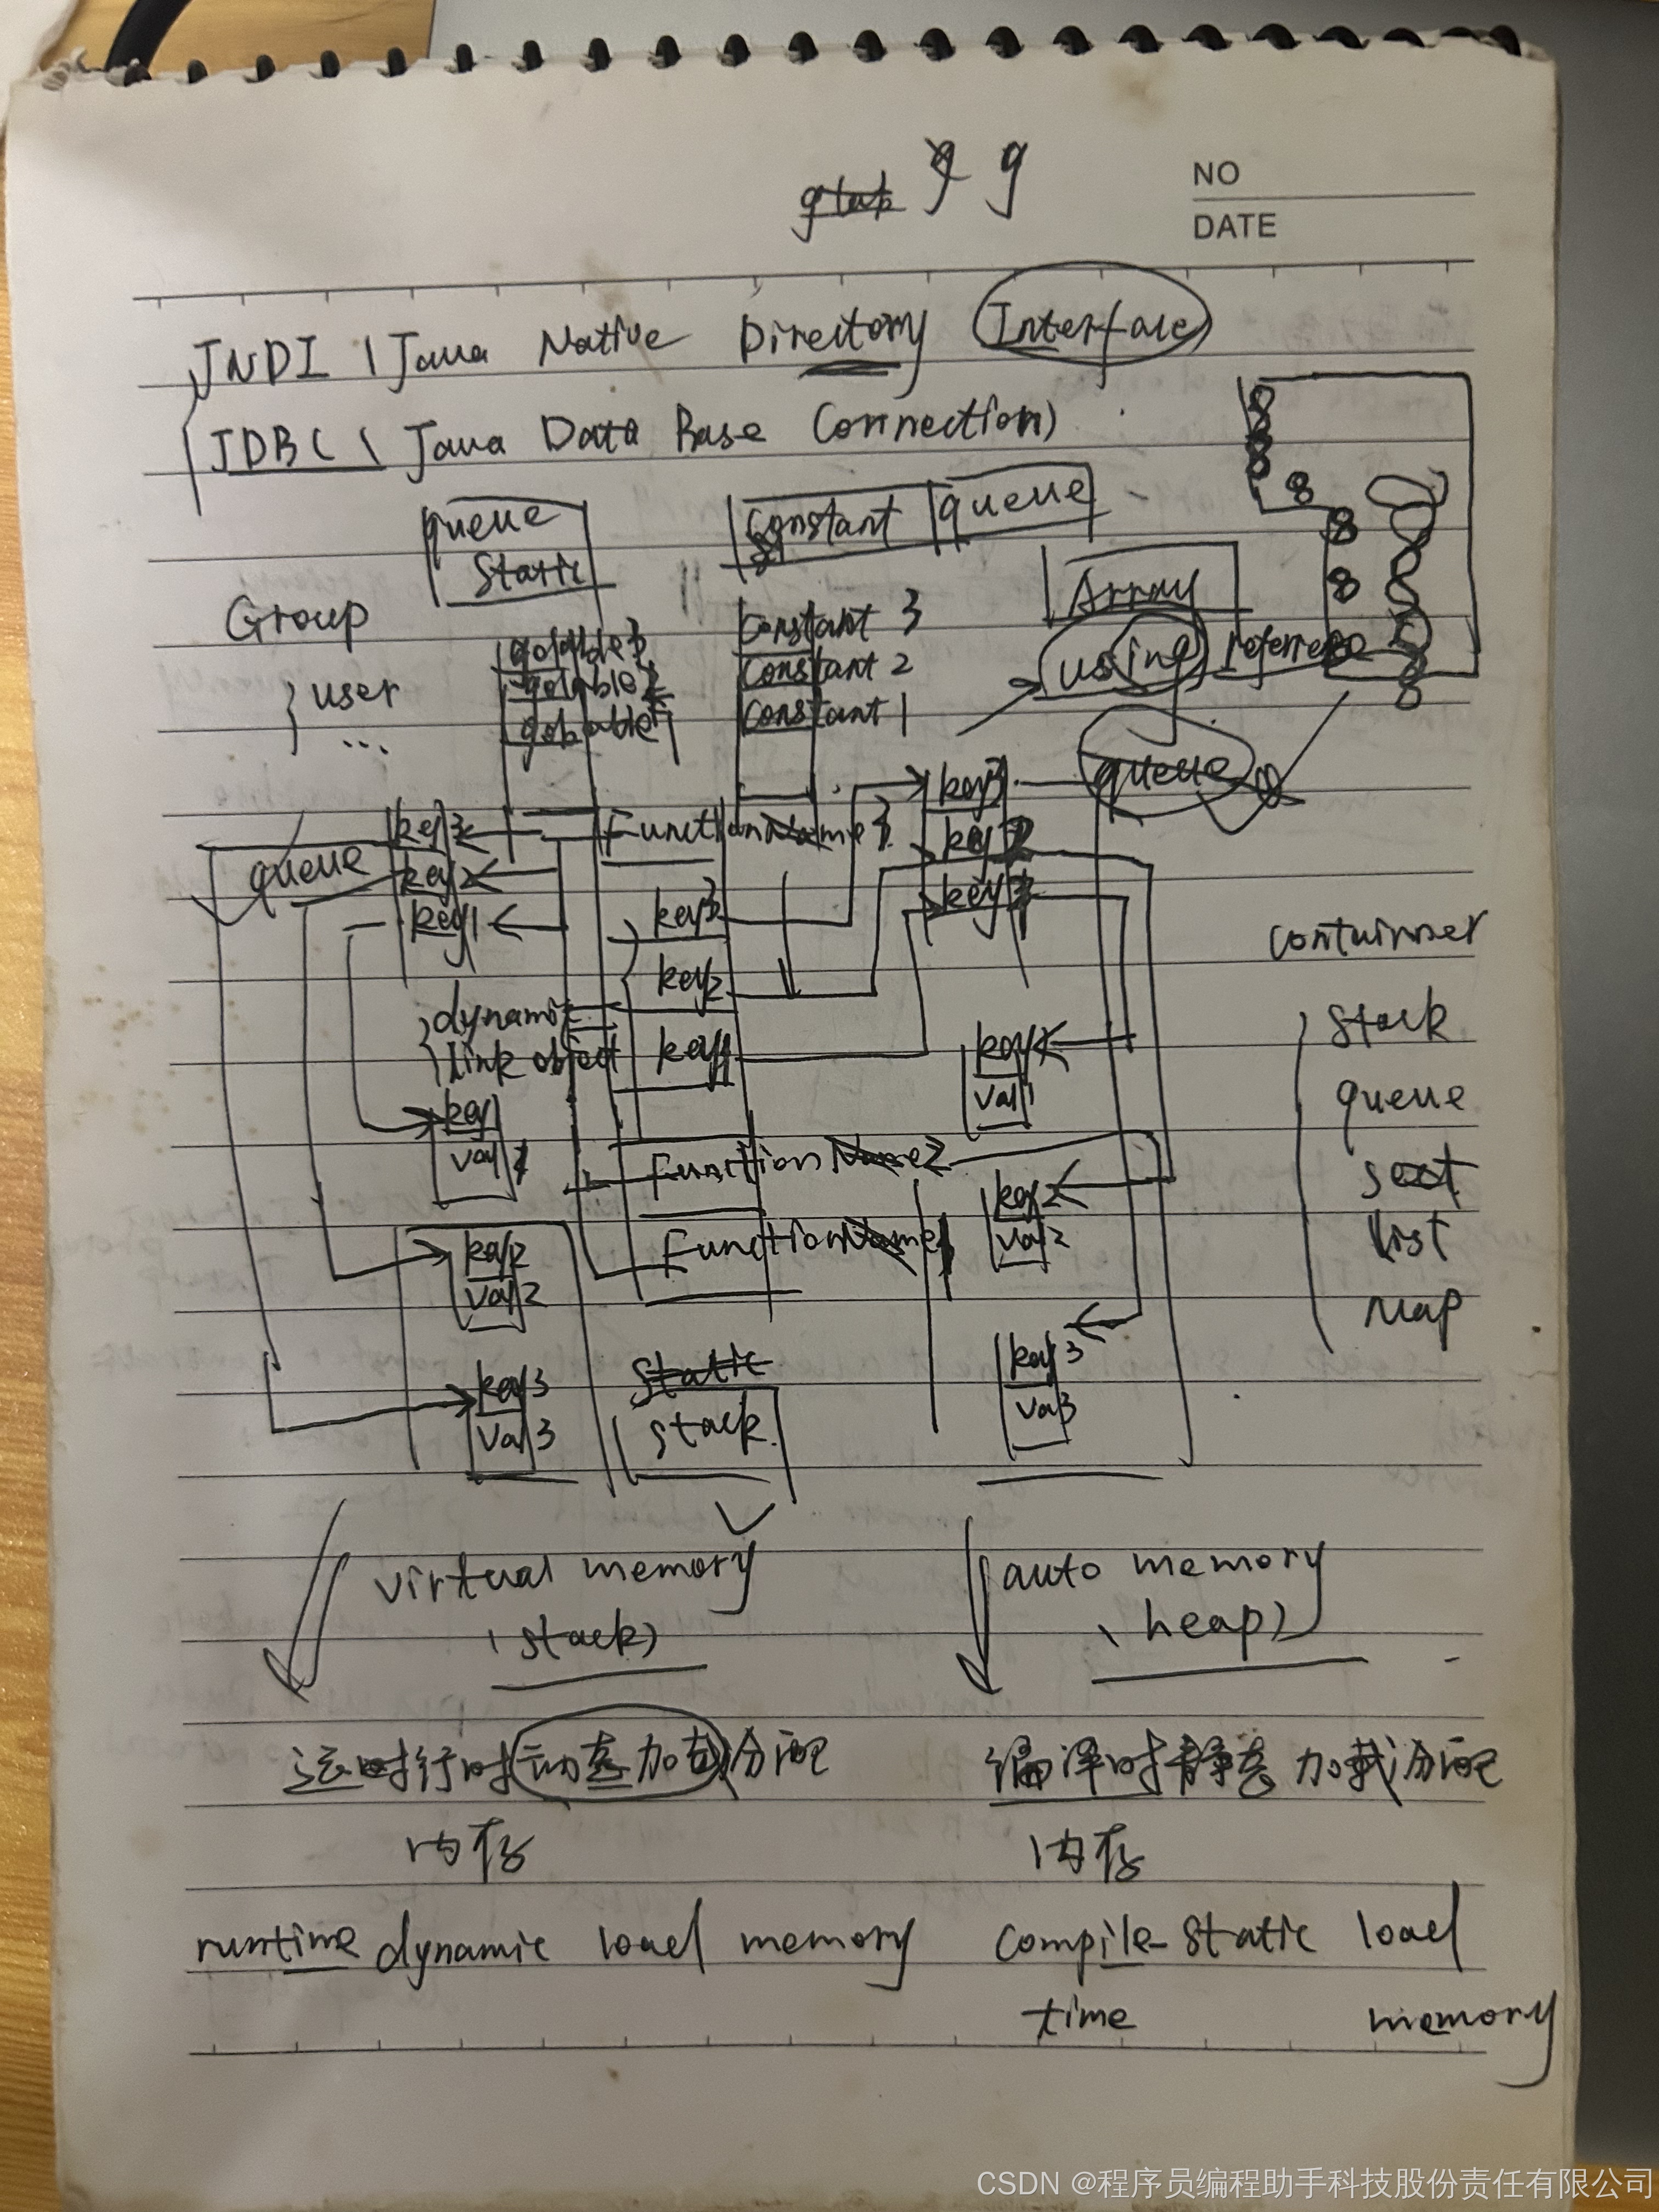 g g
NO
DATE
JNDI (Java Native Directory Interface)
JDBC (Java Data Base Connection)
queue
static
constant queue
Array
Group
user
...
golable3
golable2
golable1
constant 3
constant 2
constant 1
using referrence
queue
key3
key2
key1
queue
FunctionName3
key3
key2
key1
key3
key2
key1
dynamic
link object
containner
stack
queue
set
list
map
key1
val1
key1
val1
FunctionName2
key2
val2
FunctionName1
key2
val2
key3
val3
static
stack
key3
val3
virtual memory
(stack)
auto memory
(heap)
运时行时动态加载分配
内存
编译时静态加载分配
内存
runtime dynamic load memory
compile static load
time memory
CSDN @程序员编程助手科技股份责任有限公司